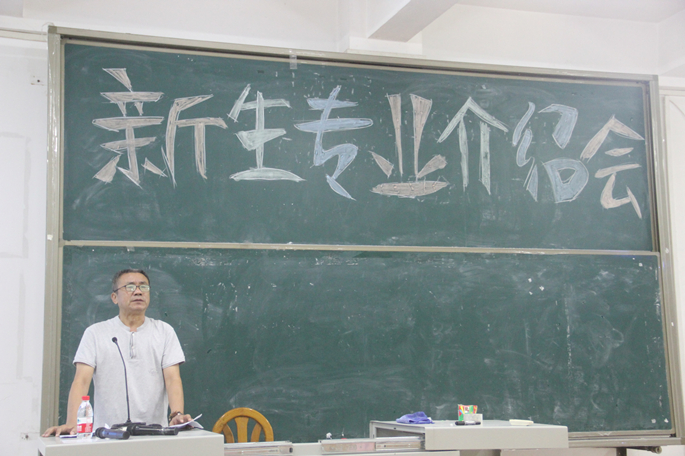 新生专业介绍会